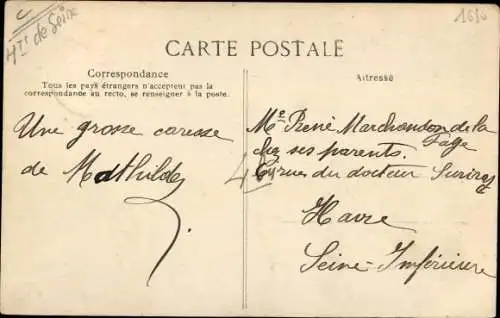 C
Hts de Seine
1650
CARTE POSTALE
Correspondance
Tous les pays étrangers n'acceptent pas la
correspondance au recto, se renseigner à la poste.
Adresse
Une grosse caresse
de Mathilde
Mr René Marchandon de la
Faye
chez ses parents.
rue du docteur Suriray
Havre
Seine-Inférieure